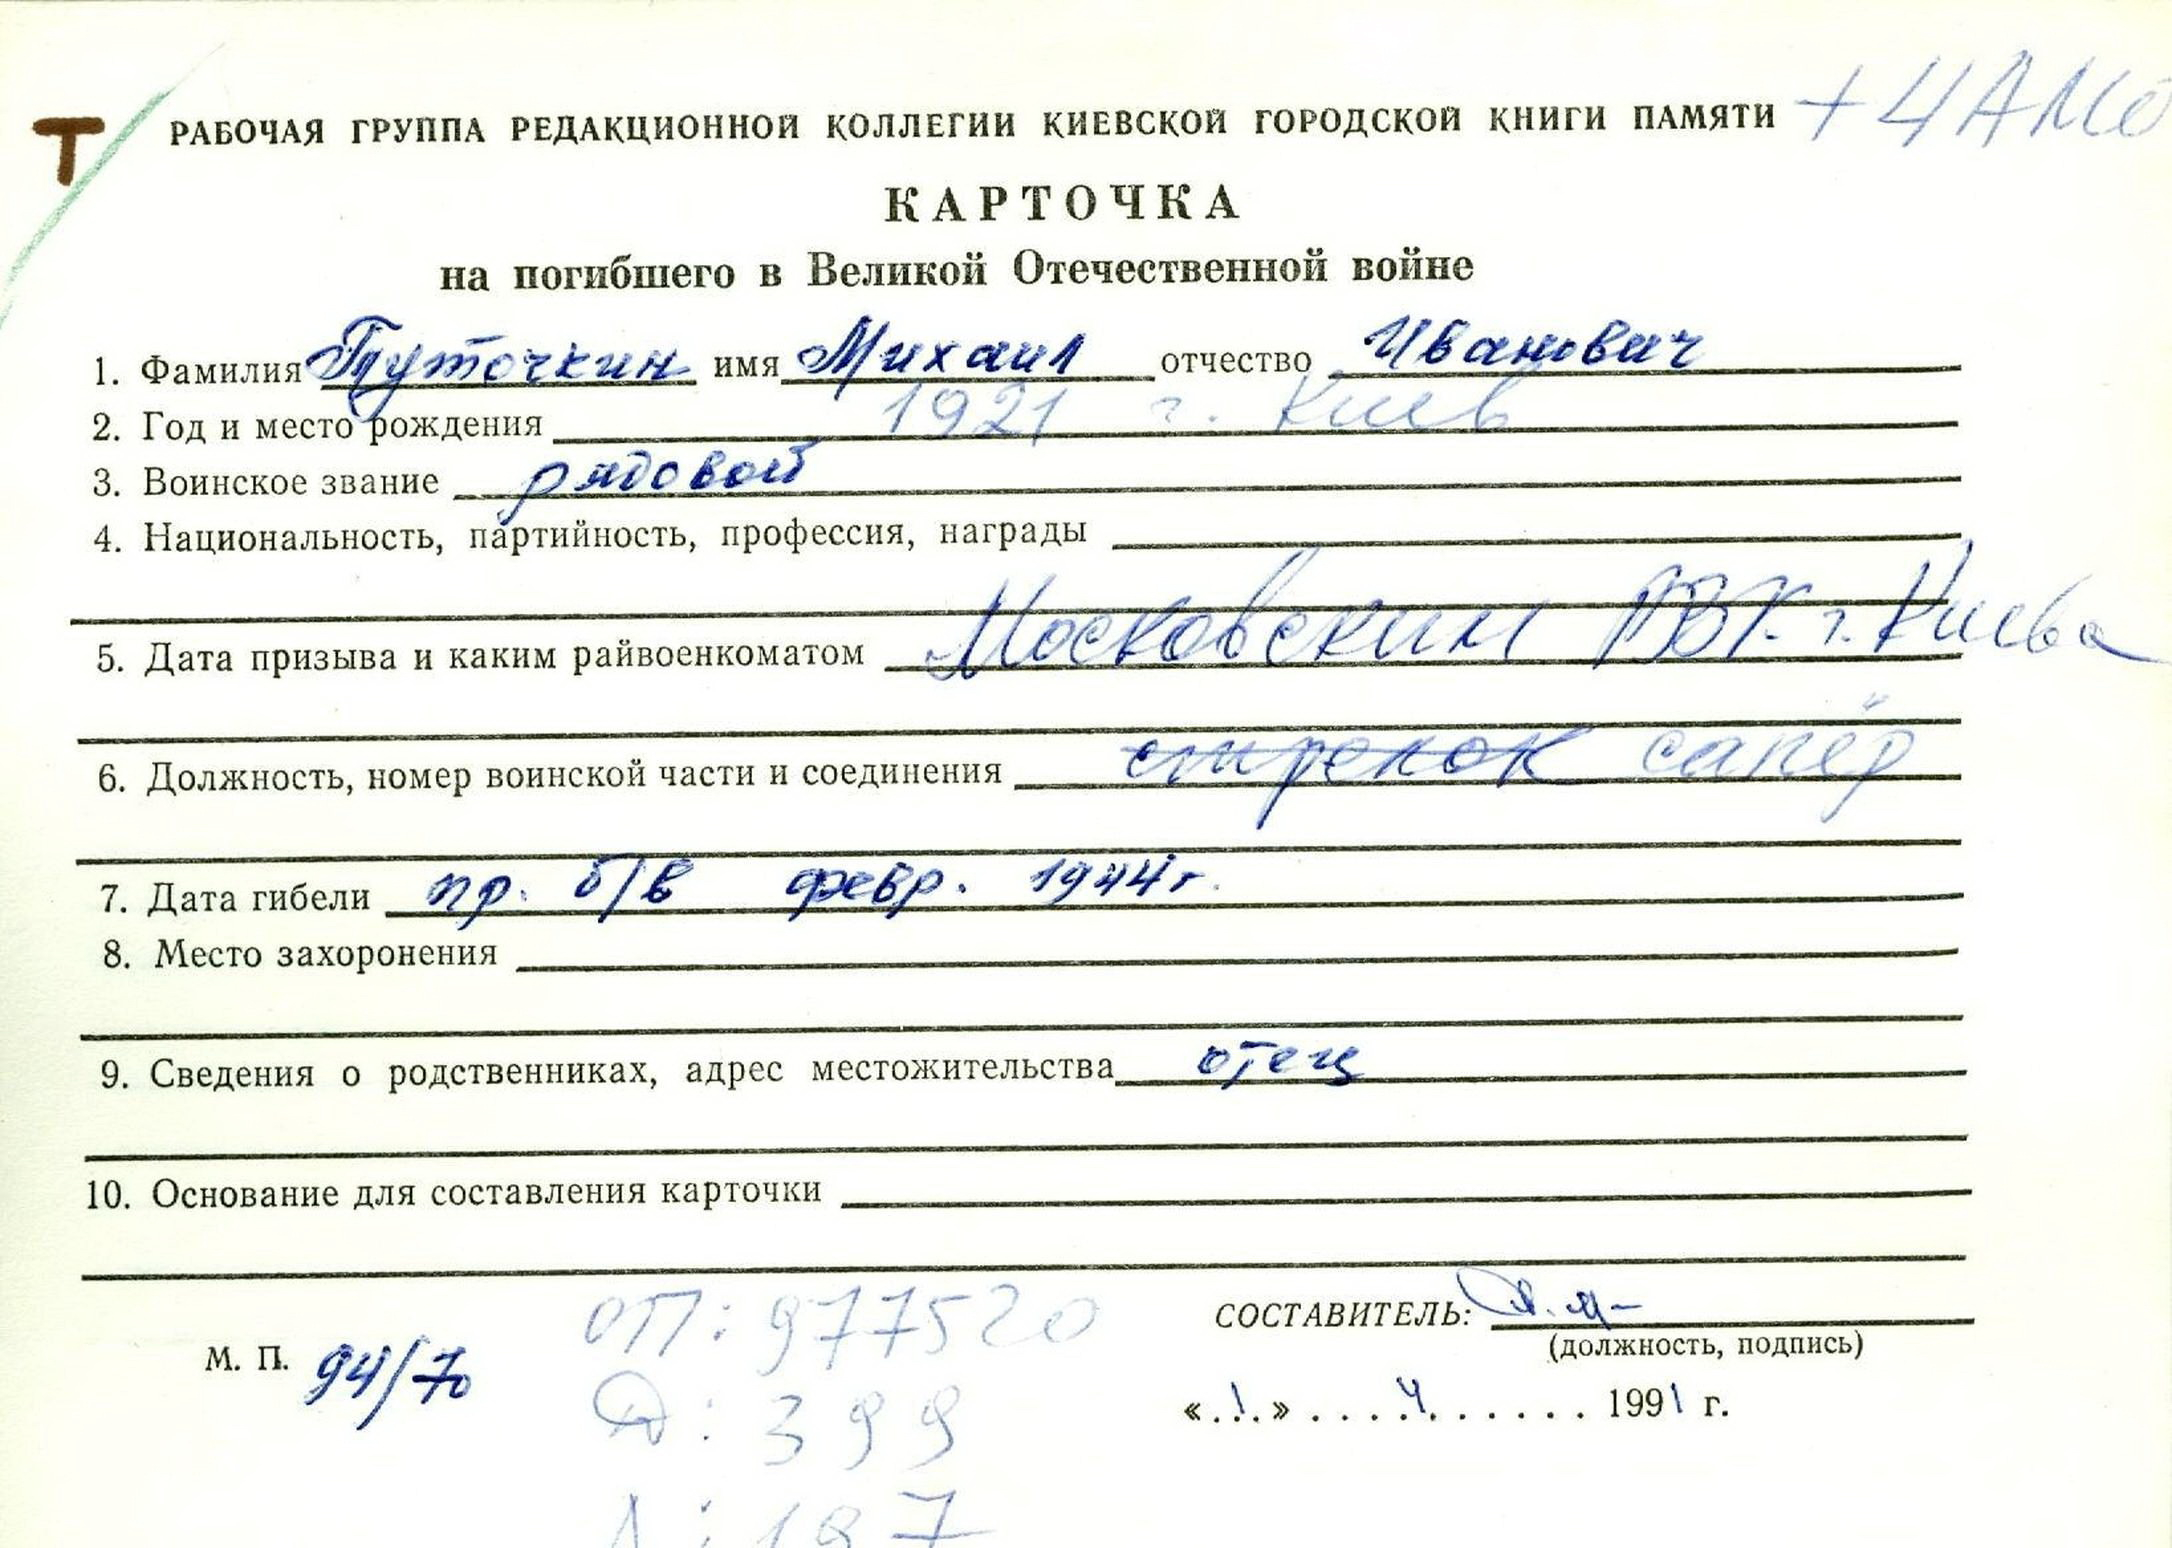 Т РАБОЧАЯ ГРУППА РЕДАКЦИОННОЙ КОЛЛЕГИИ КИЕВСКОЙ ГОРОДСКОЙ КНИГИ ПАМЯТИ + ЦАМО
КАРТОЧКА
на погибшего в Великой Отечественной войне
1. Фамилия Туточкин имя Михаил отчество Иванович
2. Год и место рождения 1921 г. Киев
3. Воинское звание рядовой
4. Национальность, партийность, профессия, награды
5. Дата призыва и каким райвоенкоматом Московским РВК г. Киева
6. Должность, номер воинской части и соединения стрелок сапёр
7. Дата гибели пр. б/в февр. 1944 г.
8. Место захоронения
9. Сведения о родственниках, адрес местожительства отец
10. Основание для составления карточки
ОП: 977520
СОСТАВИТЕЛЬ:
(должность, подпись)
М. П. 94/70
Д: 399
«.1.» . . . . 4 . . . . . . 1991 г.
Л: 197